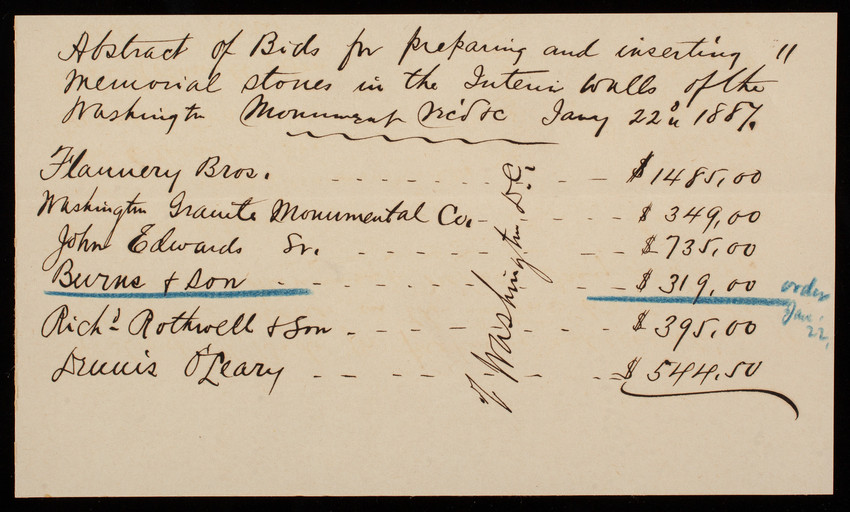 Abstract of Bids for preparing and inserting "
memorial stones in the Interior Walls of the
Washington Monument rec'd &c Jany 22d 1887.
Flannery Bros. $1485,00
Washington Granite Monumental Co. $ 349,00
John Edwards Sr. $735,00
Burns & Son $ 319,00
order
Jan.
22,
Richd Rothwell & Son $ 395,00
Dennis O'Leary $ 544,50
Washington, D.C.